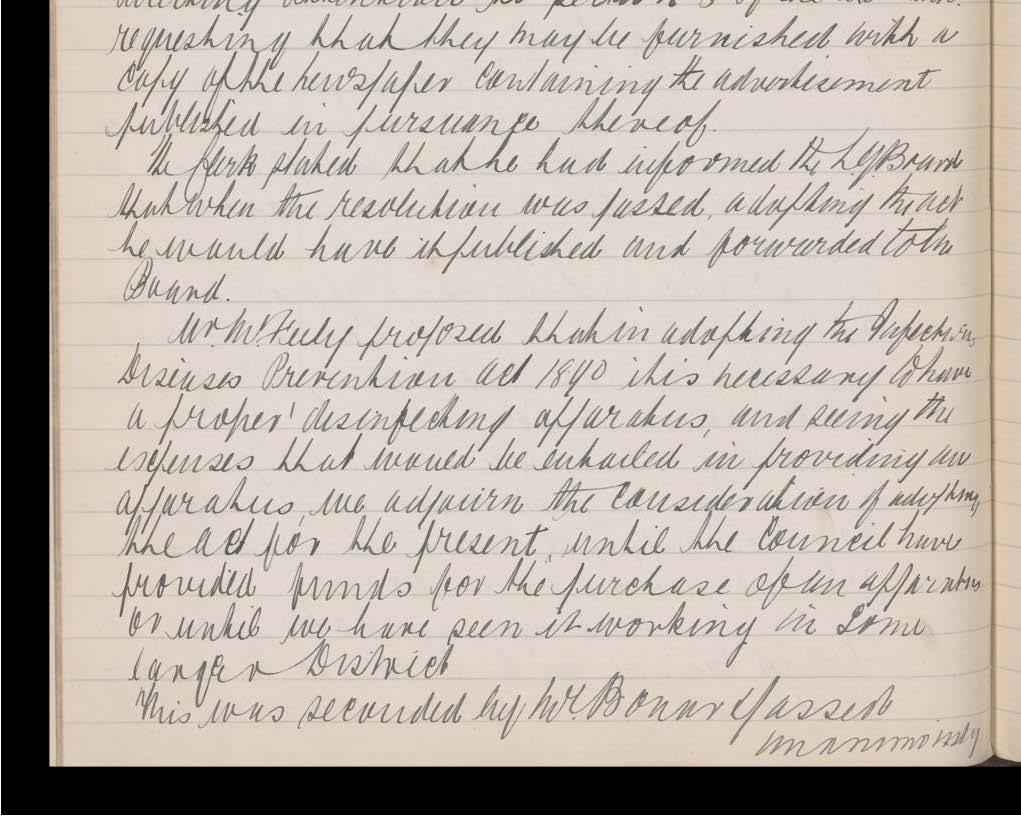 requesting that they may be furnished with a
copy of the newspaper containing the advertisement
published in pursuance thereof.
The Clerk stated that he had informed the L.G. Board
that when the resolution was passed, adopting the act
he would have it published and forwarded to the
Board.
Mr. McFeely proposed that in adopting the Infectious
Diseases Prevention Act 1890 it is necessary to have
a proper disinfecting apparatus, and seeing the
expenses that would be entailed in providing an
apparatus, we adjourn the consideration of adopting
the act for the present, until the Council have
provided funds for the purchase of an apparatus
or until we have seen it working in some
larger District
This was seconded by Mr. Bonar & passed
unanimously